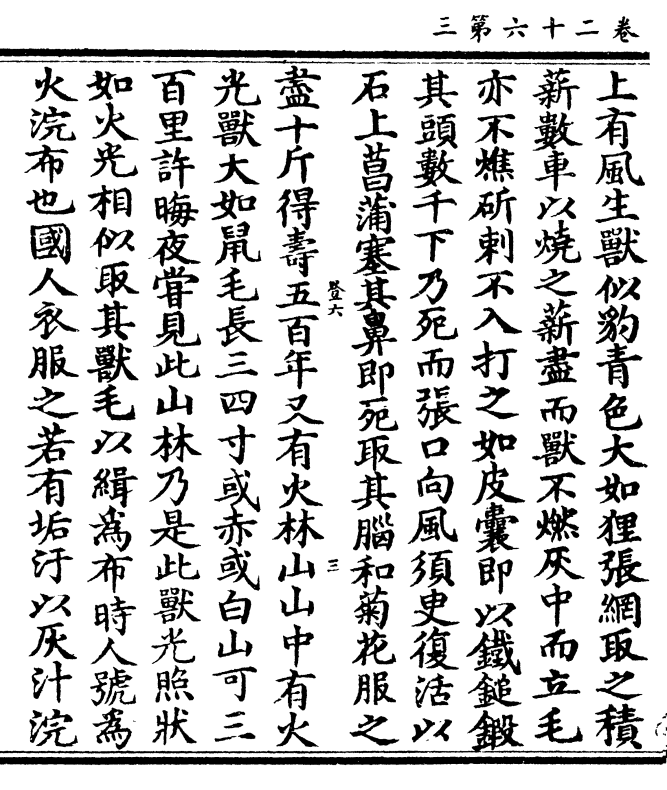 卷二十六第三
上有風生獸似豹青色大如狸張網取之積
薪數車以燒之薪盡而獸不燃灰中而立毛
亦不燋斫刺不入打之如皮囊即以鐵鎚鍛
其頭數千下乃死而張口向風須臾復活以
石上菖蒲塞其鼻即死取其腦和菊花服之
登六
三
盡十斤得壽五百年又有火林山山中有火
光獸大如鼠毛長三四寸或赤或白山可三
百里許晦夜嘗見此山林乃是此獸光照狀
如火光相似取其獸毛以緝為布時人號為
火浣布也國人衣服之若有垢汙以灰汁浣